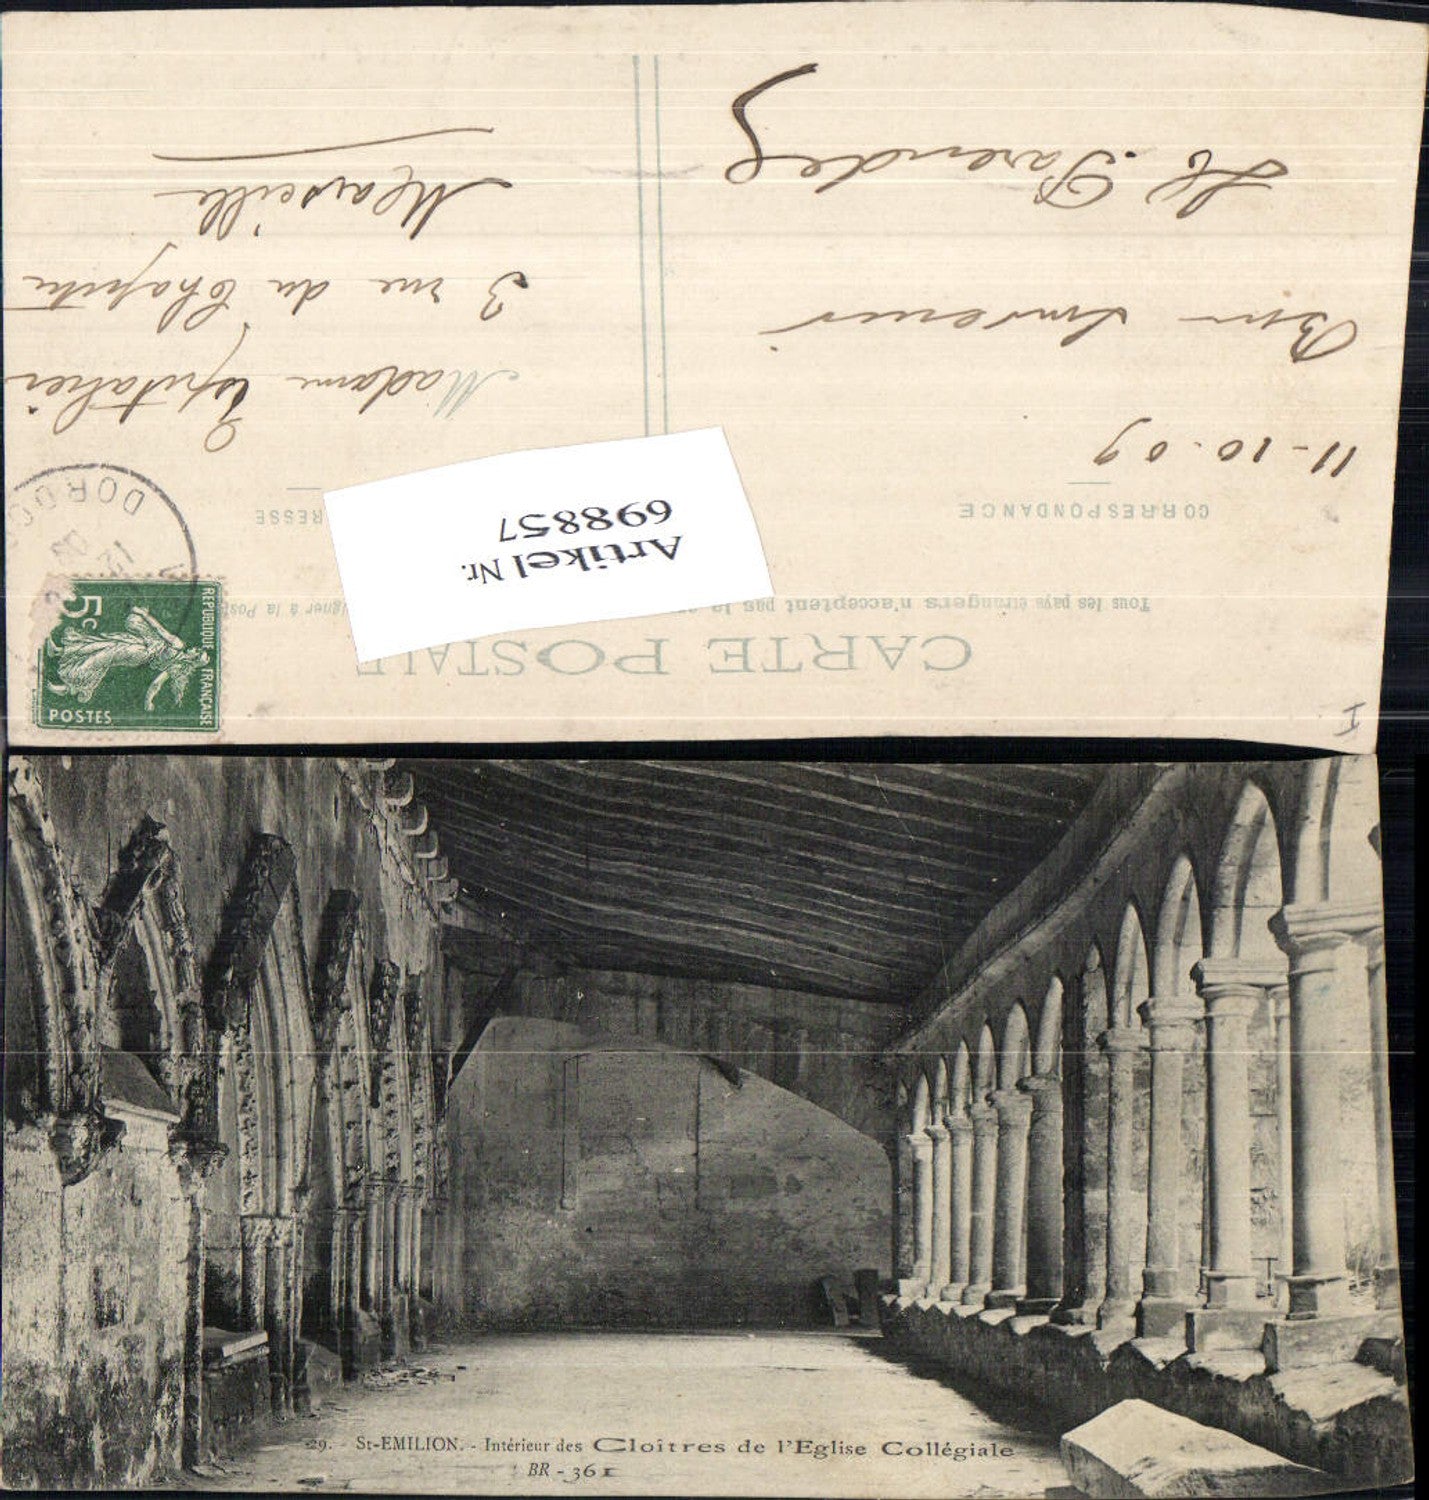 CARTE POSTALE
Tous les pays étrangers n'acceptent pas la
igner à la Poste
CORRESPONDANCE
RESSE
Artikel Nr.
698857
11-10.09
Bon Souvenir
Madame Espitalier
3 rue du Chapitre
Marseille
DORDO
12
09
REPUBLIQUE FRANÇAISE
5c
POSTES
I
29. - St-EMILION. - Intérieur des Cloîtres de l'Eglise Collégiale
BR - 361